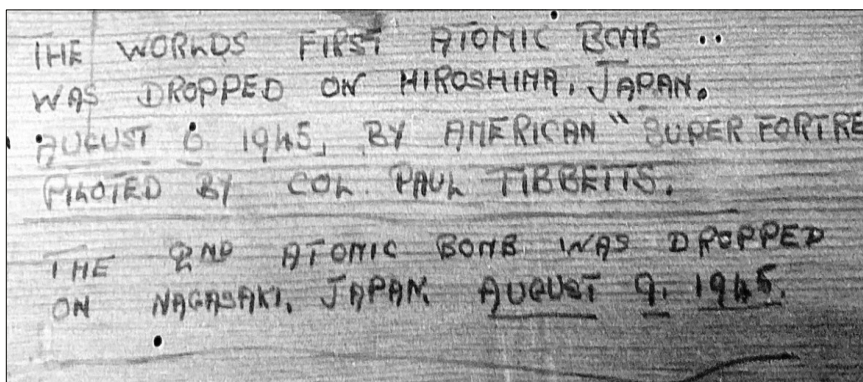 THE WORLDS FIRST ATOMIC BOMB ..
WAS DROPPED ON HIROSHIMA, JAPAN.
AUGUST 6 1945, BY AMERICAN "SUPER FORTRE
PILOTED BY COL. PAUL TIBBETTS.
THE 2ND ATOMIC BOMB WAS DROPPED
ON NAGASAKI, JAPAN. AUGUST 9, 1945.